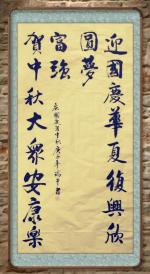 迎國慶華夏復興欣
圓夢
富強
賀中秋大眾安康樂